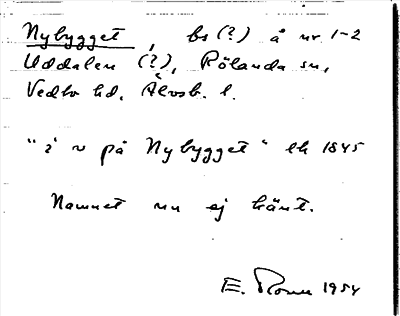 Nybygget, bs (?) å nr 1-2
Uddalen (?), Rölanda sn,
Vedbo hd. Älvsb. l.
"i v på Nybygget" lk 1845
Namnet nu ej känt.
E. 1954